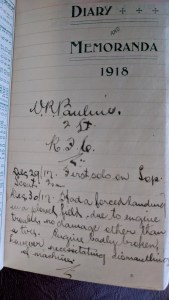 DIARY
AND
MEMORANDA
1918
V.R. Pauline
2 Lt.
R F C.
Dec 29/17. First solo on Sop.
Scout.
Dec 30/17. Had a forced landing
in a plowed field, due to engine
trouble no damage other than
a tire. Engine badly broken,
however necessitating dismantling
of machine